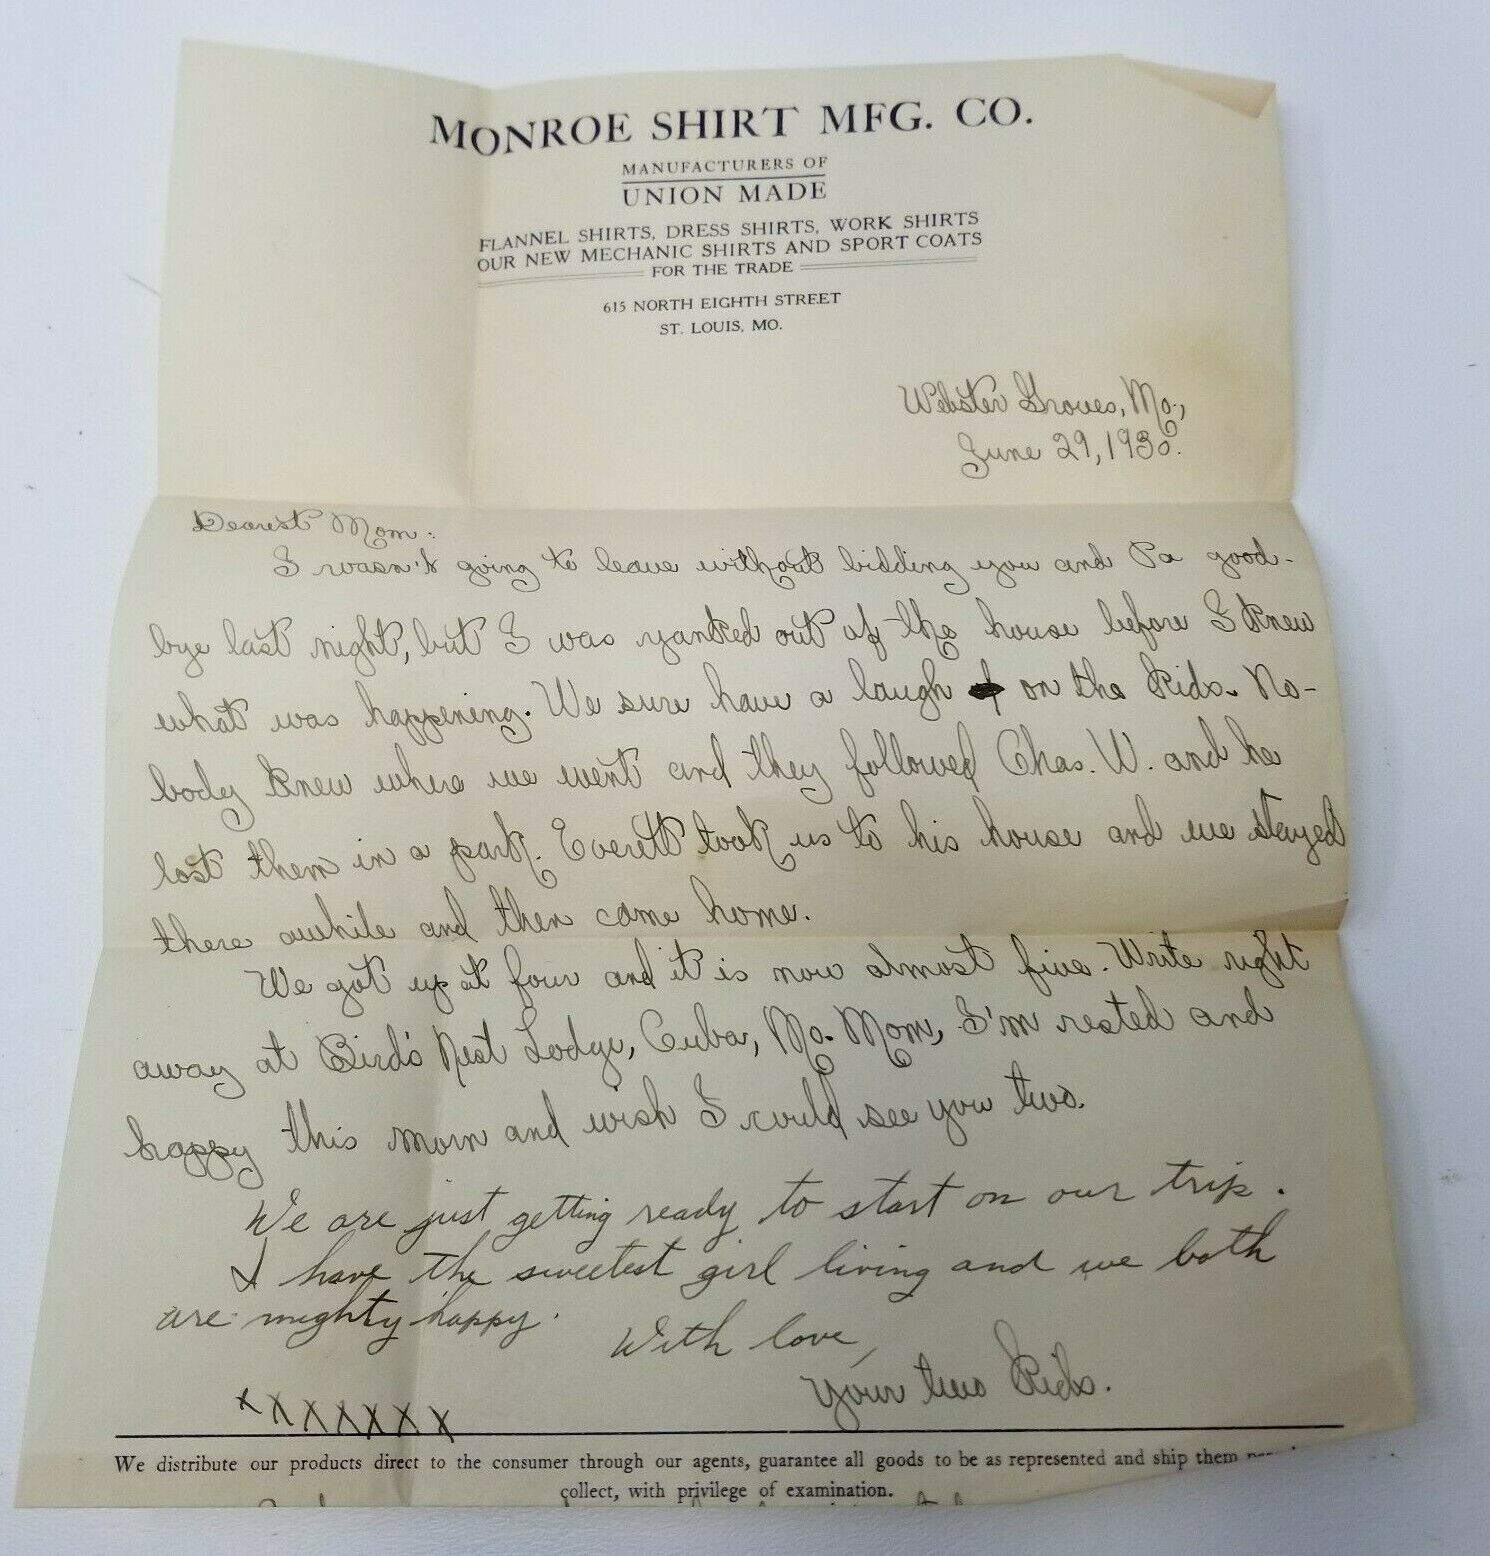 MONROE SHIRT MFG. CO.
MANUFACTURERS OF
UNION MADE
FLANNEL SHIRTS, DRESS SHIRTS, WORK SHIRTS
OUR NEW MECHANIC SHIRTS AND SPORT COATS
FOR THE TRADE
615 NORTH EIGHTH STREET
ST. LOUIS, MO.
Webster Groves, Mo.,
June 29, 1930.
Dearest Mom:
I wasn't going to leave without bidding you and Pa good-
bye last night, but I was yanked out of the house before I knew
what was happening. We sure have a laugh on the kids. No-
body knew where we went and they followed Chas. W. and he
lost them in a park. Everett took us to his house and we stayed
there awhile and then came home.
We got up at four and it is now almost five. Write right
away at Bird's Nest Lodge, Cuba, Mo. Mom, I'm rested and
happy this morn and wish I could see you two.
We are just getting ready to start on our trip.
I have the sweetest girl living and we both
are mighty happy.
With love,
Your two kids.
xxxxxxx
We distribute our products direct to the consumer through our agents, guarantee all goods to be as represented and ship them
collect, with privilege of examination.